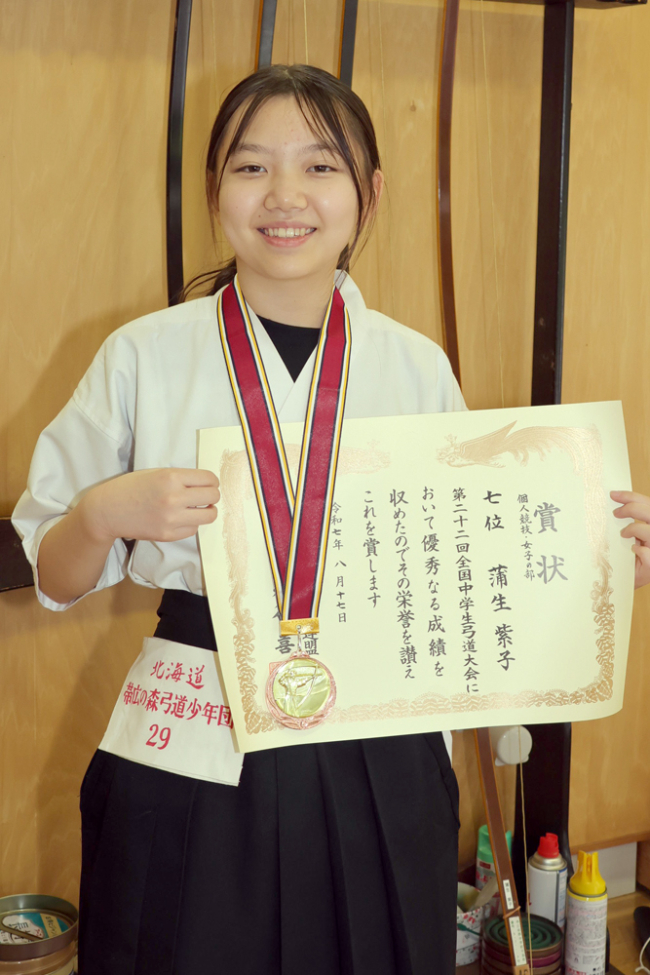 賞状
個人競技・女子の部
七位 蒲生 紫子
第二十二回全国中学生弓道大会に
おいて優秀なる成績を
収めたのでその栄誉を讃え
これを賞します
令和七年 八月十七日
盟
喜
北海道
帯広の森弓道少年団
29